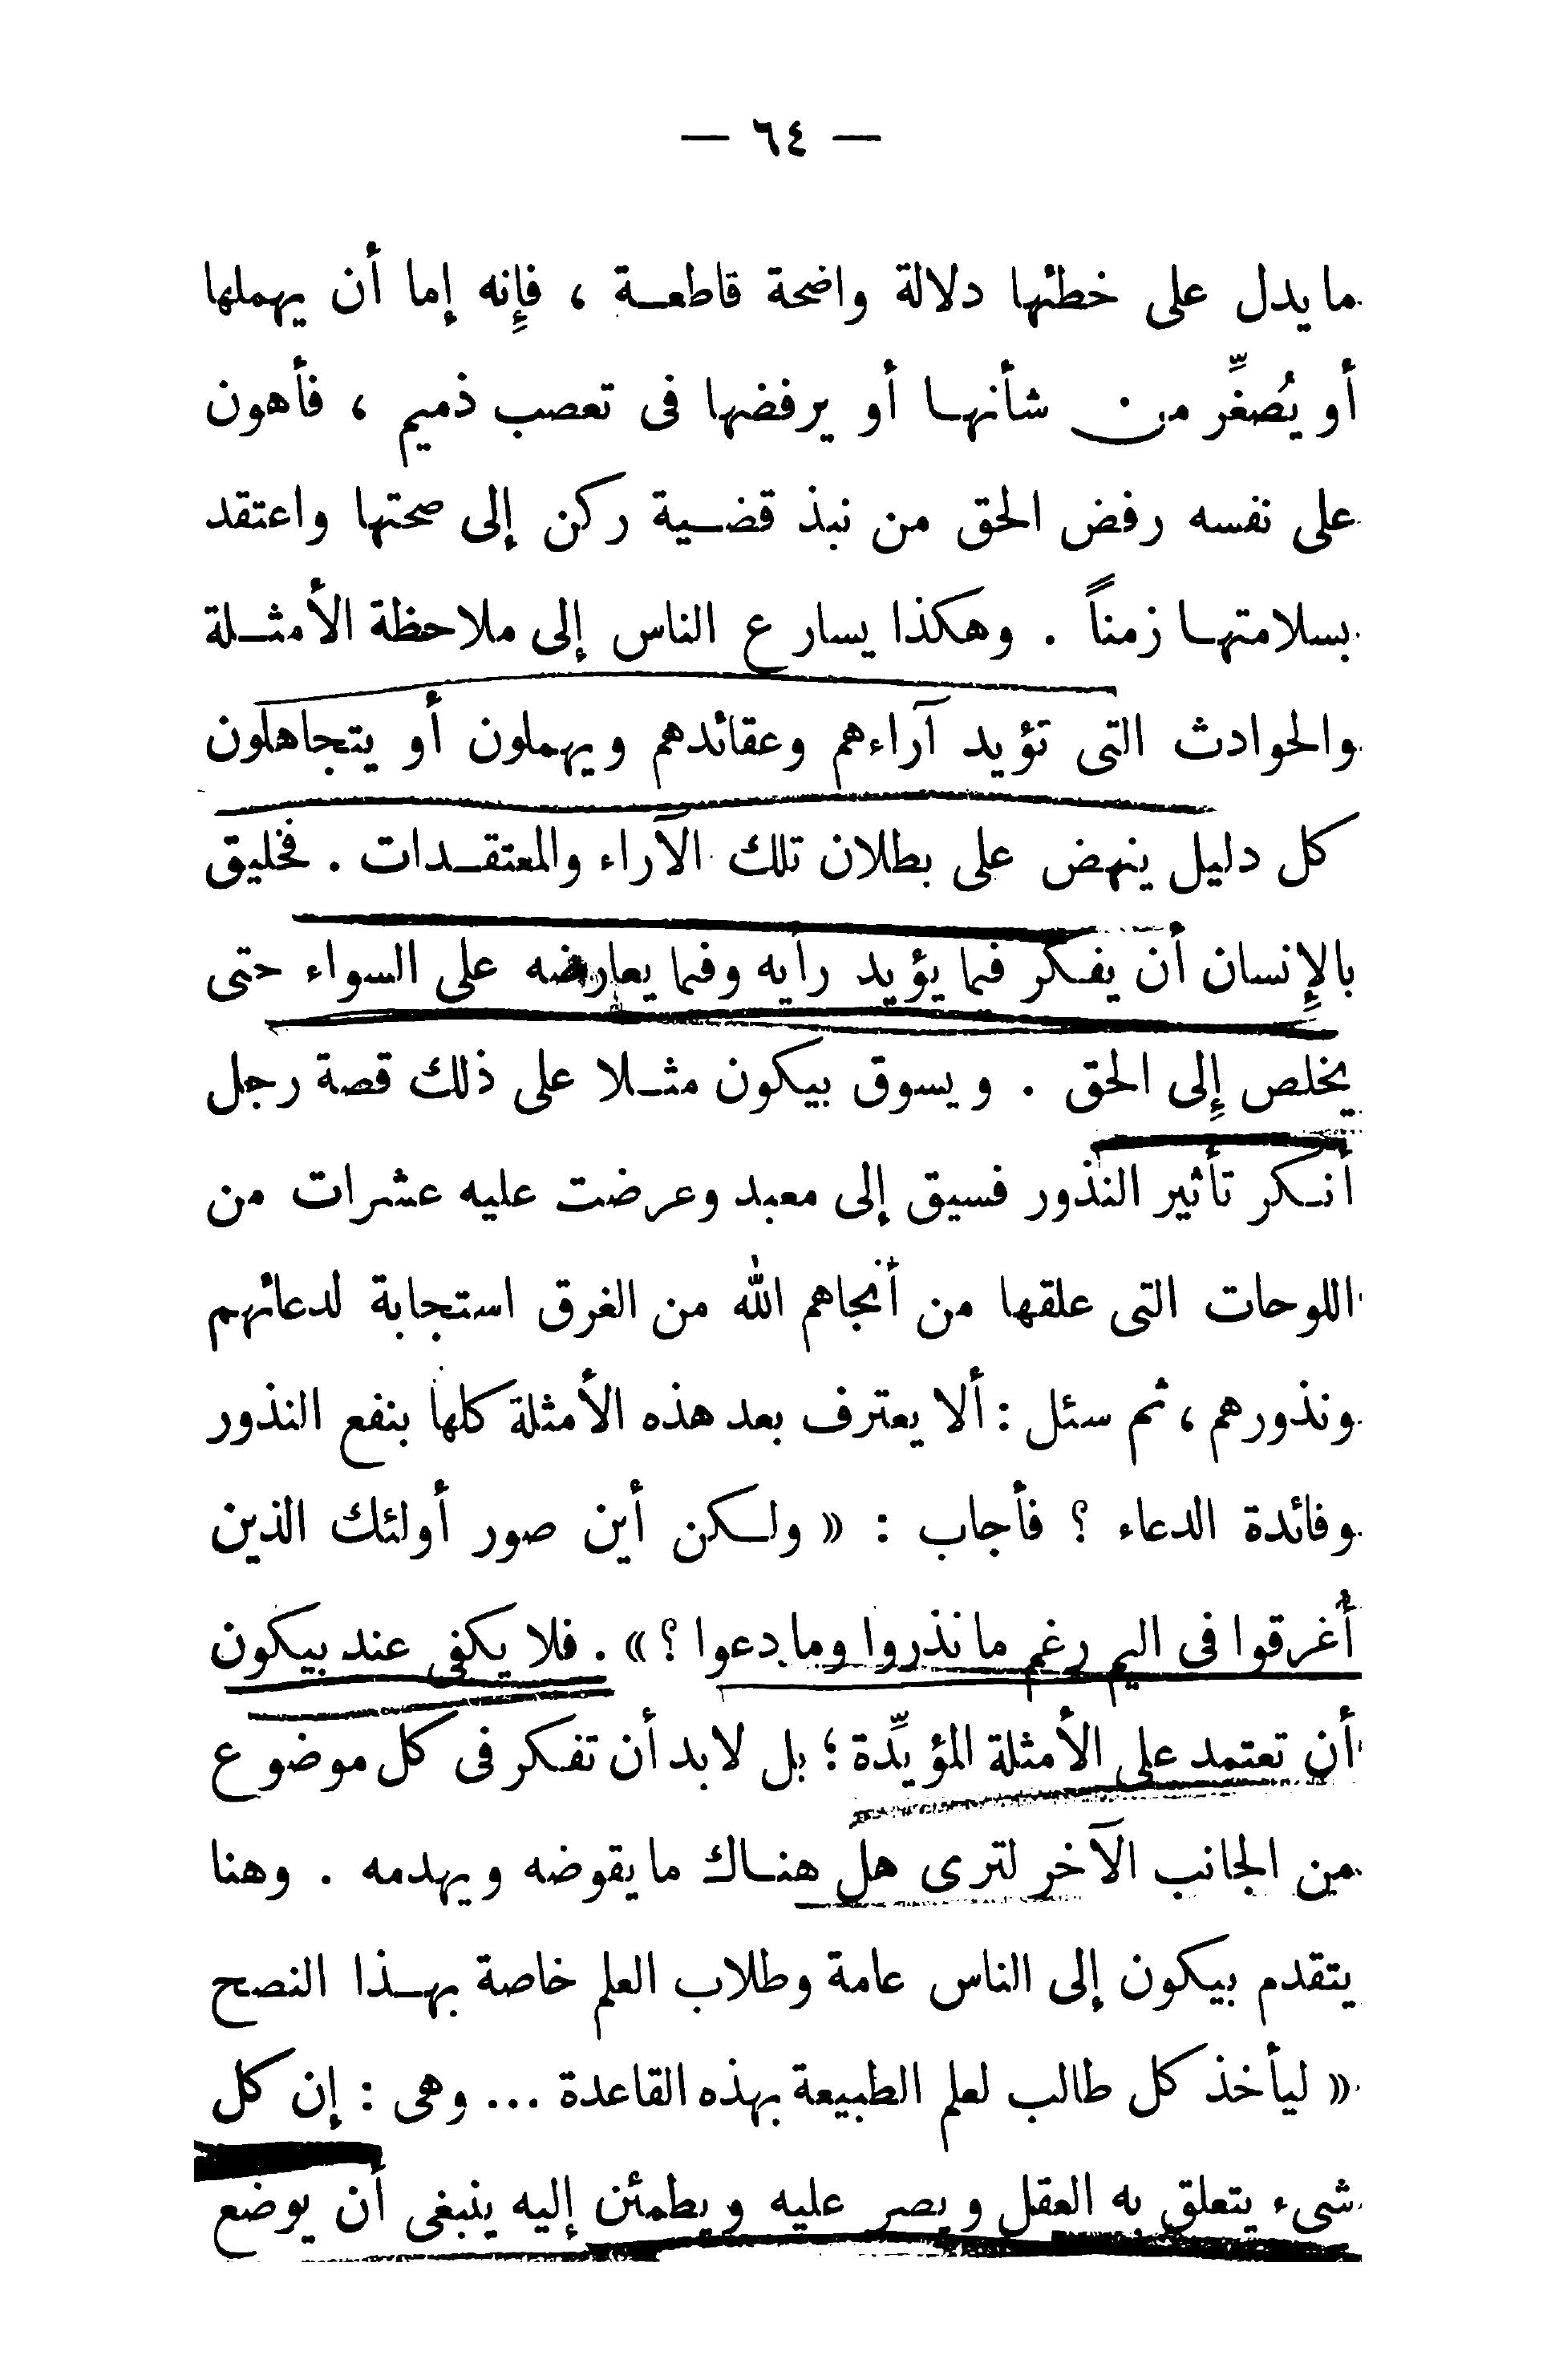 — ٦٤ —
ما يدل على خطئها دلالة واضحة قاطعة ، فإنه إما أن يهملها
أو يُصغِّر من شأنها أو يرفضها فى تعصب ذميم ، فأهون
على نفسه رفض الحق من نبذ قضية ركن إلى صحتها واعتقد
بسلامتها زمناً . وهكذا يسارع الناس إلى ملاحظة الأمثلة
والحوادث التى تؤيد آراءهم وعقائدهم ويهملون أو يتجاهلون
كل دليل ينهض على بطلان تلك الآراء والمعتقدات . فخليق
بالإنسان أن يفكر فيما يؤيد رأيه وفيما يعارضه على السواء حتى
يخلص إلى الحق . ويسوق بيكون مثلا على ذلك قصة رجل
أنكر تأثير النذور فسيق إلى معبد وعرضت عليه عشرات من
اللوحات التى علقها من أنجاهم الله من الغرق استجابة لدعائهم
ونذورهم ، ثم سئل : ألا يعترف بعد هذه الأمثلة كلها بنفع النذور
وفائدة الدعاء ؟ فأجاب : « ولكن أين صور أولئك الذين
أُغرقوا فى اليم رغم ما نذروا وما دعوا ؟ » . فلا يكفى عند بيكون
أن تعتمد على الأمثلة المؤيِّدة ؛ بل لا بد أن تفكر فى كل موضوع
من الجانب الآخر لترى هل هناك ما يقوضه ويهدمه . وهنا
يتقدم بيكون إلى الناس عامة وطلاب العلم خاصة بهذا النصح
« ليأخذ كل طالب لعلم الطبيعة بهذه القاعدة ... وهى : إن كل
شىء يتعلق به العقل ويصر عليه ويطمئن إليه ينبغى أن يوضع